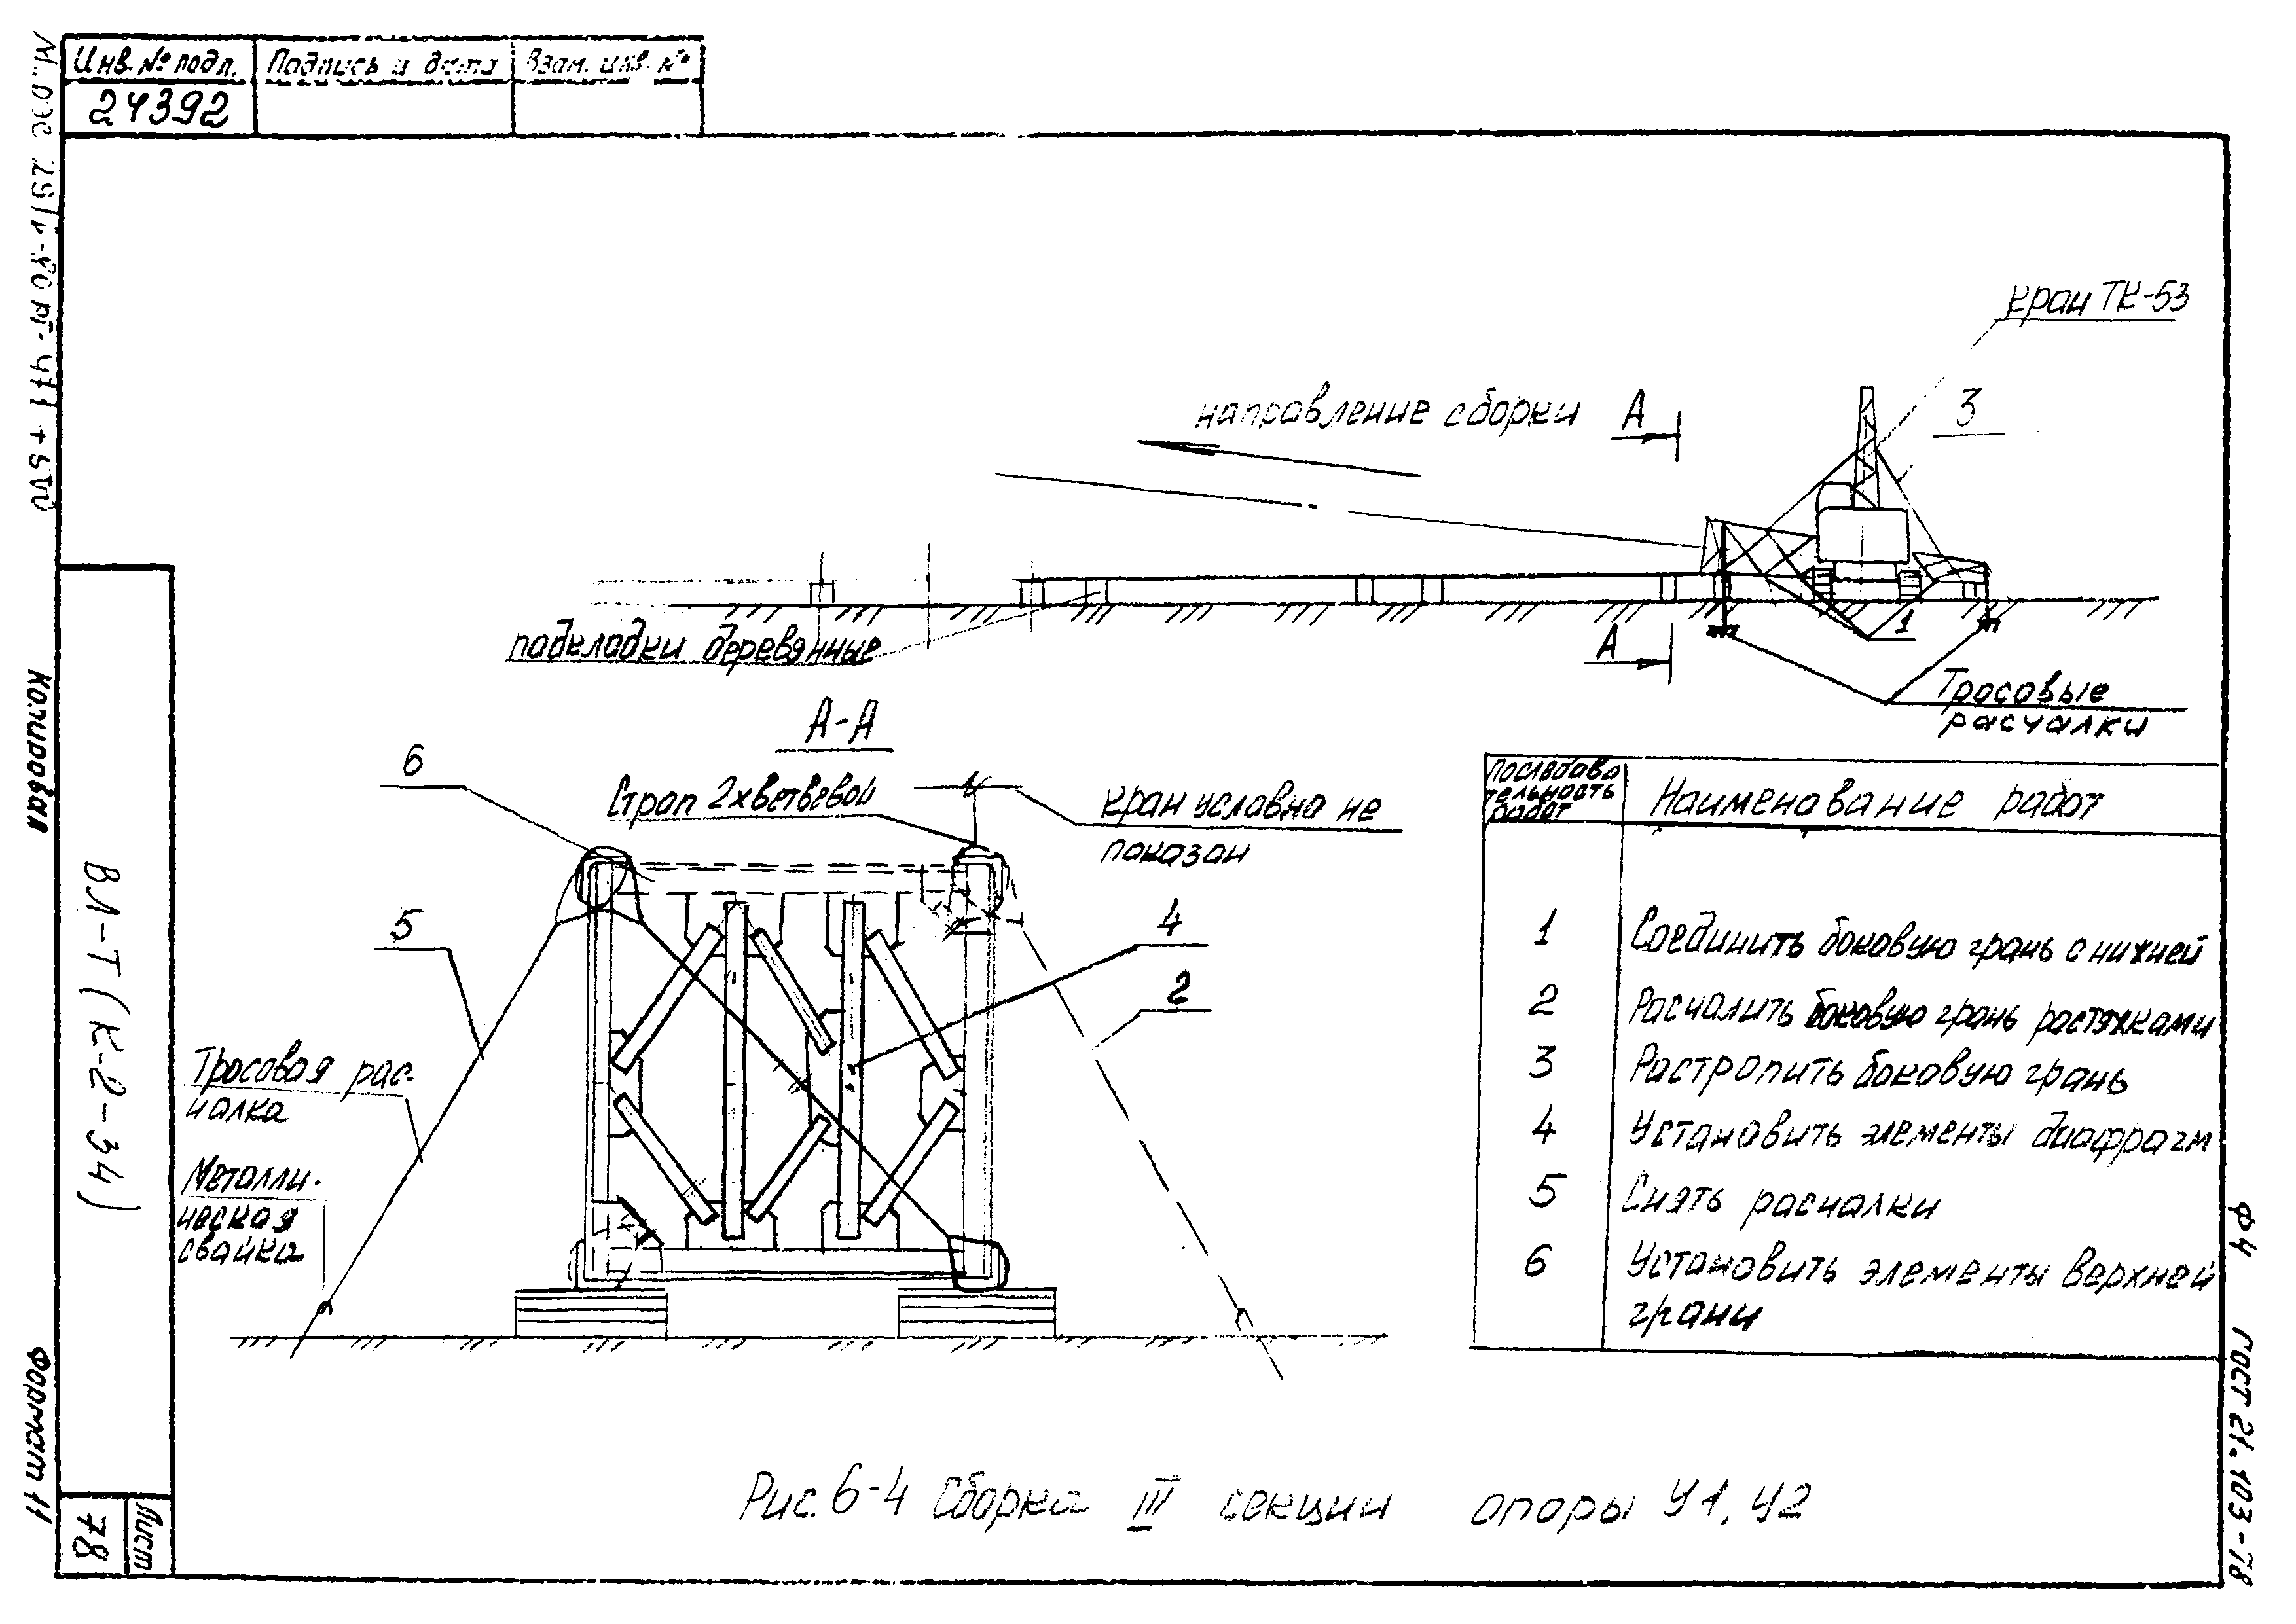 Инв. № подл.
Подпись и дата
Взам. инв. №
24392
кран ТК-53
направление сборки
А
3
подкладки деревянные
1
А
Тросовые
расчалки
А-А
6
Строп 2хветвевой
кран условна не
показан
5
4
2
Тросовая рас-
чалка
Металли-
ческая
свайка
последова
тельность
работ
Наименование работ
1
Соединить боковую грань с нижней
2
Расчалить боковую грань растяжками
3
Растропить боковую грань
4
Установить элементы диафрагм
5
Снять расчалки
6
Установить элементы верхней
грани
Рис. 6-4 Сборка III секции опоры У1, У2
Копировал
Формат 11
ВЛ-Т (К-2-34)
Лист
78
Ф4 ГОСТ 21.103-78